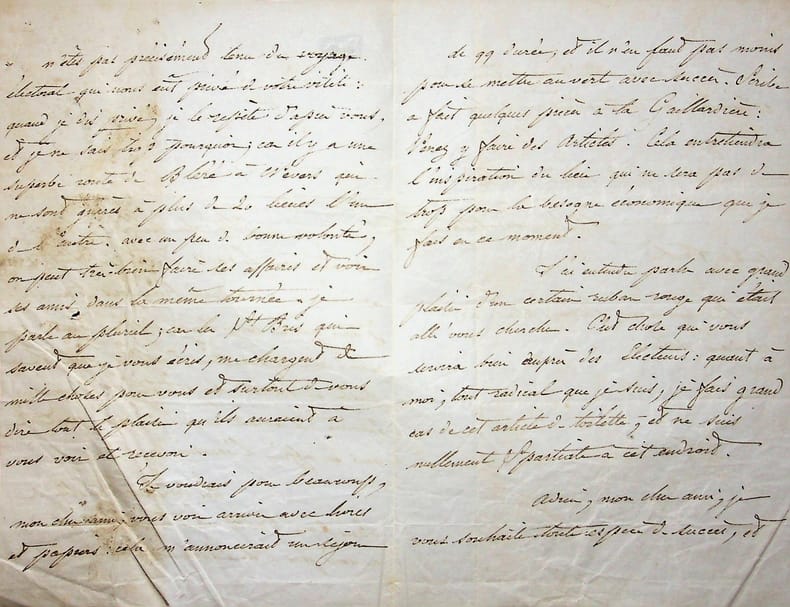 n'êtes pas précisément tenu du voyage
électoral qui nous eût privé de votre visite :
quand je dis privé, je le répète d'après vous,
et je ne sais trop pourquoi ; car il y a une
superbe route de Bléré à Nevers qui
ne sont guères à plus de 20 lieues l'un
de l'autre. avec un peu de bonne volonté,
on peut très bien faire ses affaires et voir
ses amis dans la même tournée. je
parle au pluriel ; car les Bris qui
savent que je vous écris, me chargent de
mille choses pour vous et surtout de vous
dire tout le plaisir qu'ils auraient à
vous voir et recevoir.
Je voudrais pour beaucoup,
mon cher ami, vous voir arriver avec livres
et papiers : cela m'annoncerait un séjour
de qq durée, et il n'en faut pas moins
pour se mettre au vert avec succès. Scribe
a fait quelques pièces à la Gaillardière :
Venez y faire des Articles. Cela entretiendra
l'inspiration du lieu qui ne sera pas de
trop pour la besogne économique que je
fais en ce moment.
J'ai entendu parler avec grand
plaisir d'un certain ruban rouge qui était
allé vous chercher. C'est chose qui vous
servira bien auprès des Electeurs : quant à
moi, tout radical que je suis, je fais grand
cas de cet article de toilette, et ne suis
nullement Spartiate à cet endroit.
Adieu, mon cher ami, je
vous souhaite toute espèce de succès, et